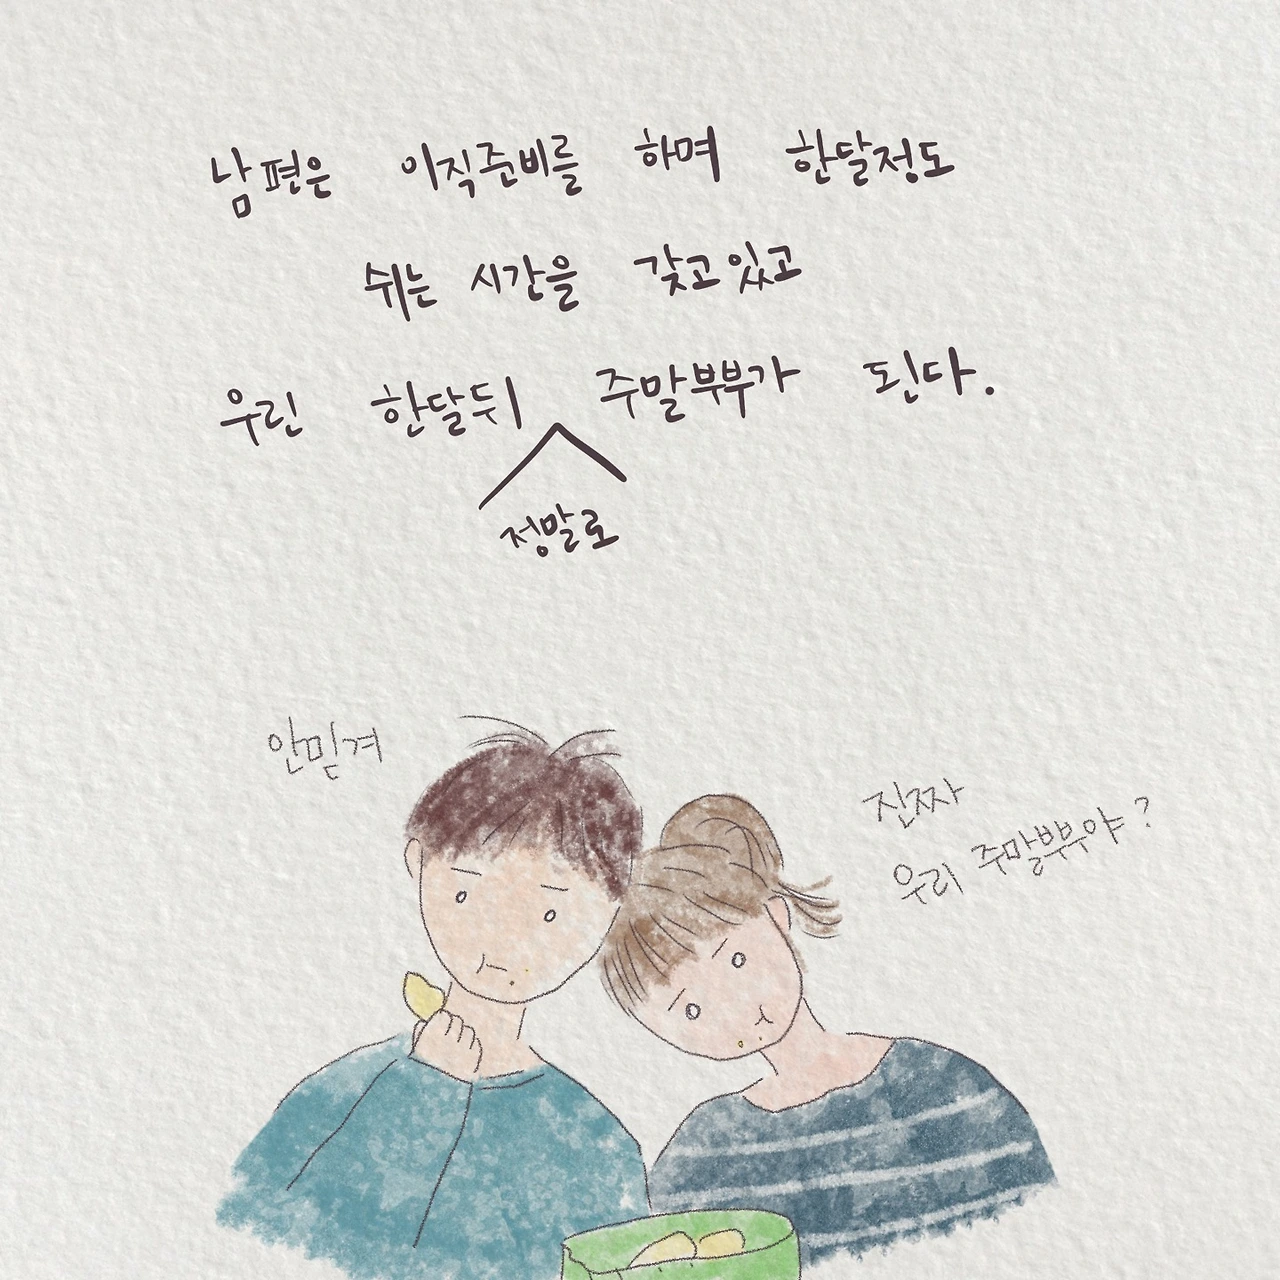 남편은 이직준비를 하며 한달정도
쉬는 시간을 갖고있고
우린 한달뒤 주말부부가 된다.
정말로
안믿겨
진짜
우리 주말부부야?